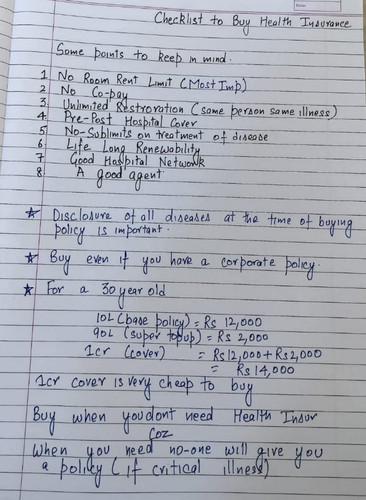 Checklist to Buy Health Insurance
Some points to keep in mind.
1 No Room Rent Limit (Most Imp)
2 No Co-pay
3. Unlimited Restroration (same person same illness)
4. Pre-Post Hospital Cover
5 No-Sublimits on treatment of disease
6 Life Long Renewability
7 Good Hospital Network
8 A good agent
★ Disclosure of all diseases at the time of buying
policy is important.
★ Buy even if you have a corporate policy.
★ For a 30 year old
10L (base policy) = Rs 12,000
90L (super topup) = Rs 2,000
1cr (cover) = Rs 12,000 + Rs 2,000
= Rs 14,000
1cr cover is very cheap to buy
Buy when you dont need Health Insur
Coz
When you need no-one will give you
a policy (if critical illness)